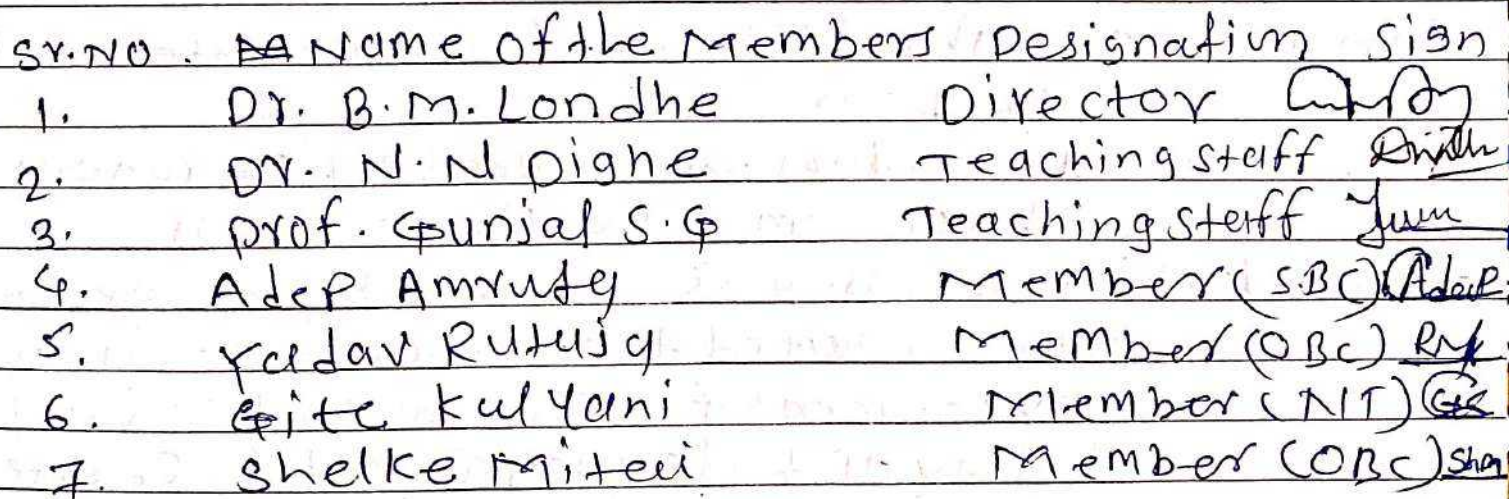 Sr.No. Name of the Members Designation Sign
1. Dr. B.M. Londhe Director
2. Dr. N.N Dighe Teaching Staff
3. Prof. Gunjal S.G Teaching Staff
4. Adep Amruta Member (S.BC) Adep
5. Yadav Rutuja Member (OBC)
6. Gite Kalyani Member (NT) GK
7. Shelke Mitali Member (OBC)